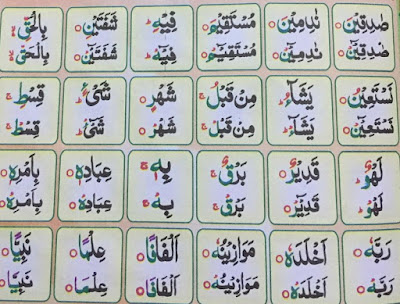 صٰدِقِيْنَ ○ نٰدِمِيْنَ ○ مُسْتَقِيْمَ ○ فِيْهِ شَفَتَيْنِ ○ بِالْحَقِّ
صٰدِقِيْنْ ○ نٰدِمِيْنْ ○ مُسْتَقِيْمْ ○ فِيْهْ شَفَتَيْنْ ○ بِالْحَقّْ
نَسْتَعِيْنُ ○ يَشَآءُ مِنْ قَبْلُ شَهْرٍ ○ شَیْءٍ قِسْطٍ
نَسْتَعِيْنْ ○ يَشَآءْ مِنْ قَبْلْ شَهْرْ ○ شَیْءْ قِسْطْ
لَهُوَ قَدِيْرٌ ○ بَرْقٌ بِهٖ عِبَادِهٖ ○ بِاَمْرِهٖ ○
لَهُوْ قَدِيْرْ ○ بَرْقْ بِهْ عِبَادِهْ ○ بِاَمْرِهْ ○
رَبَّهٗ ○ اَخْلَدَهٗ ○ مَوَازِيْنُهٗ ○ اَلْفَافًا ○ عِلْمًا ○ نَبِيًّا ○
رَبَّهْ ○ اَخْلَدَهْ ○ مَوَازِيْنُهْ ○ اَلْفَافَا ○ عِلْمَا ○ نَبِيَّا ○